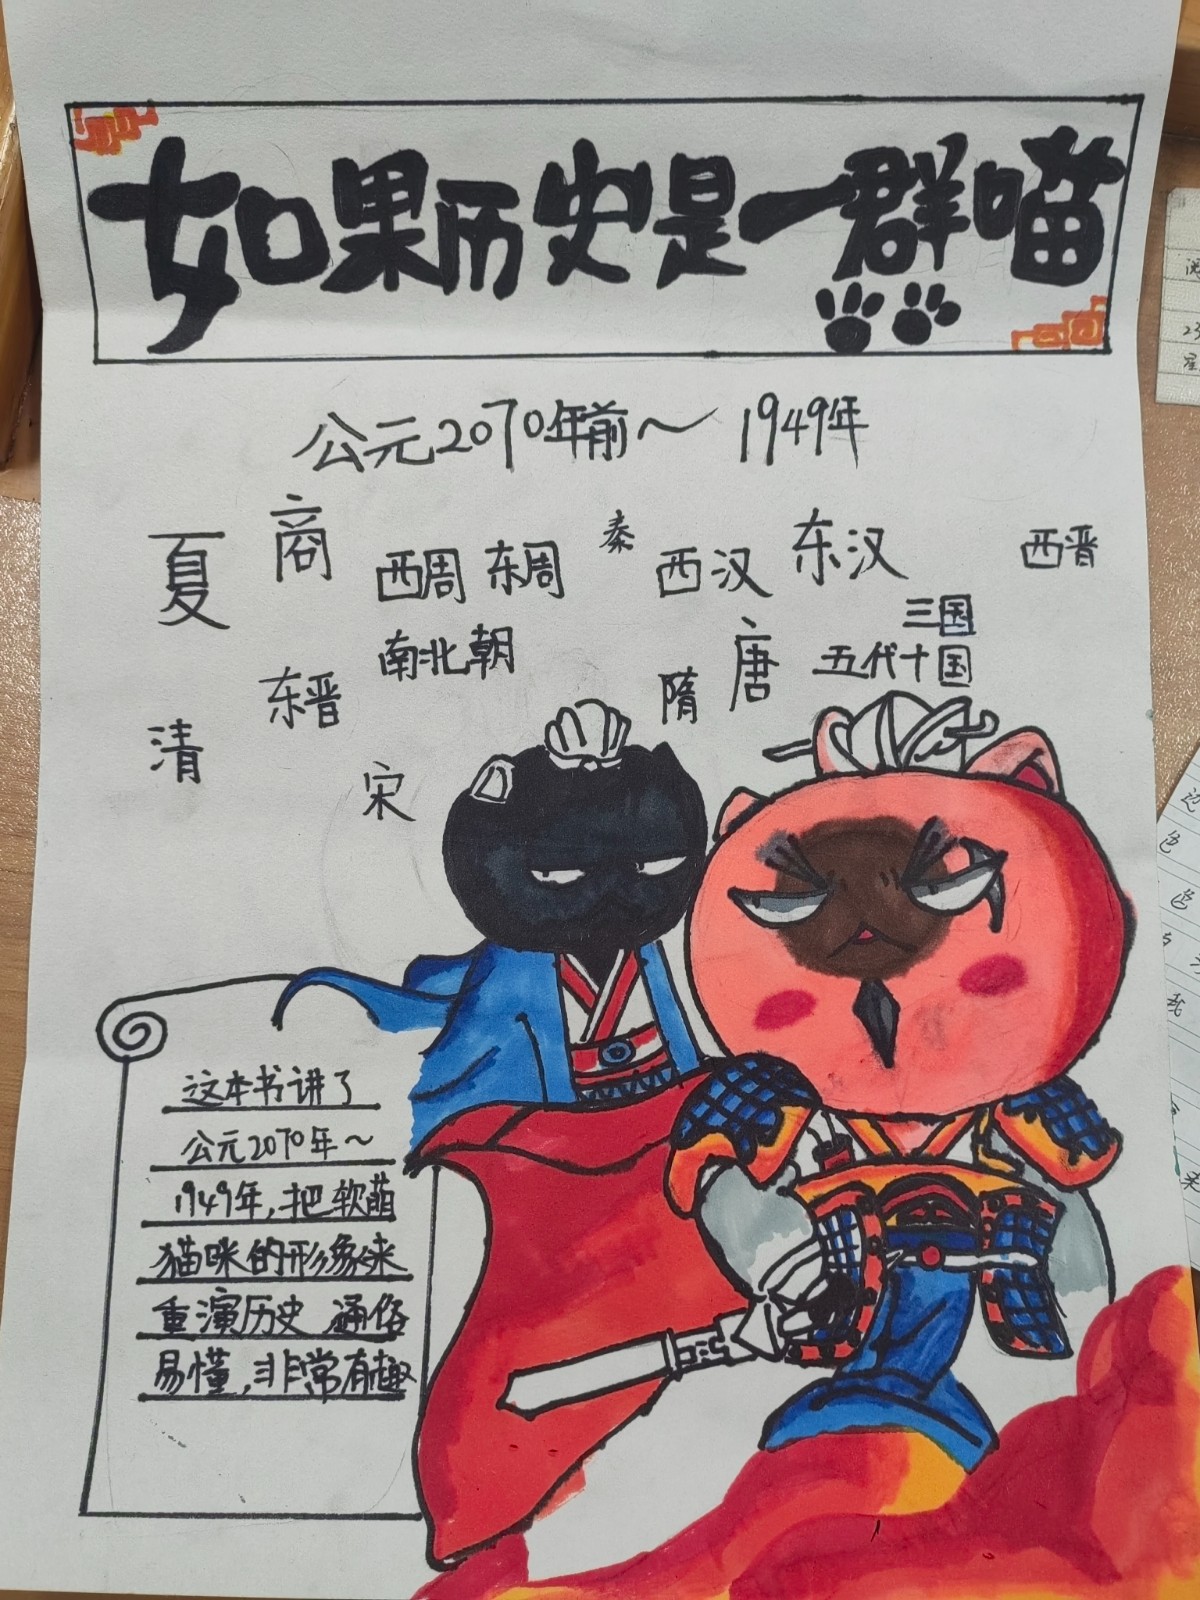 如果历史是一群喵
公元2070年前～1949年
夏 商 西周 东周 秦 西汉 东汉 三国 西晋
东晋 南北朝 隋 唐 五代十国
清 宋
这本书讲了
公元2070年～
1949年，把软萌
猫咪的形象来
重演历史 通俗
易懂，非常有趣